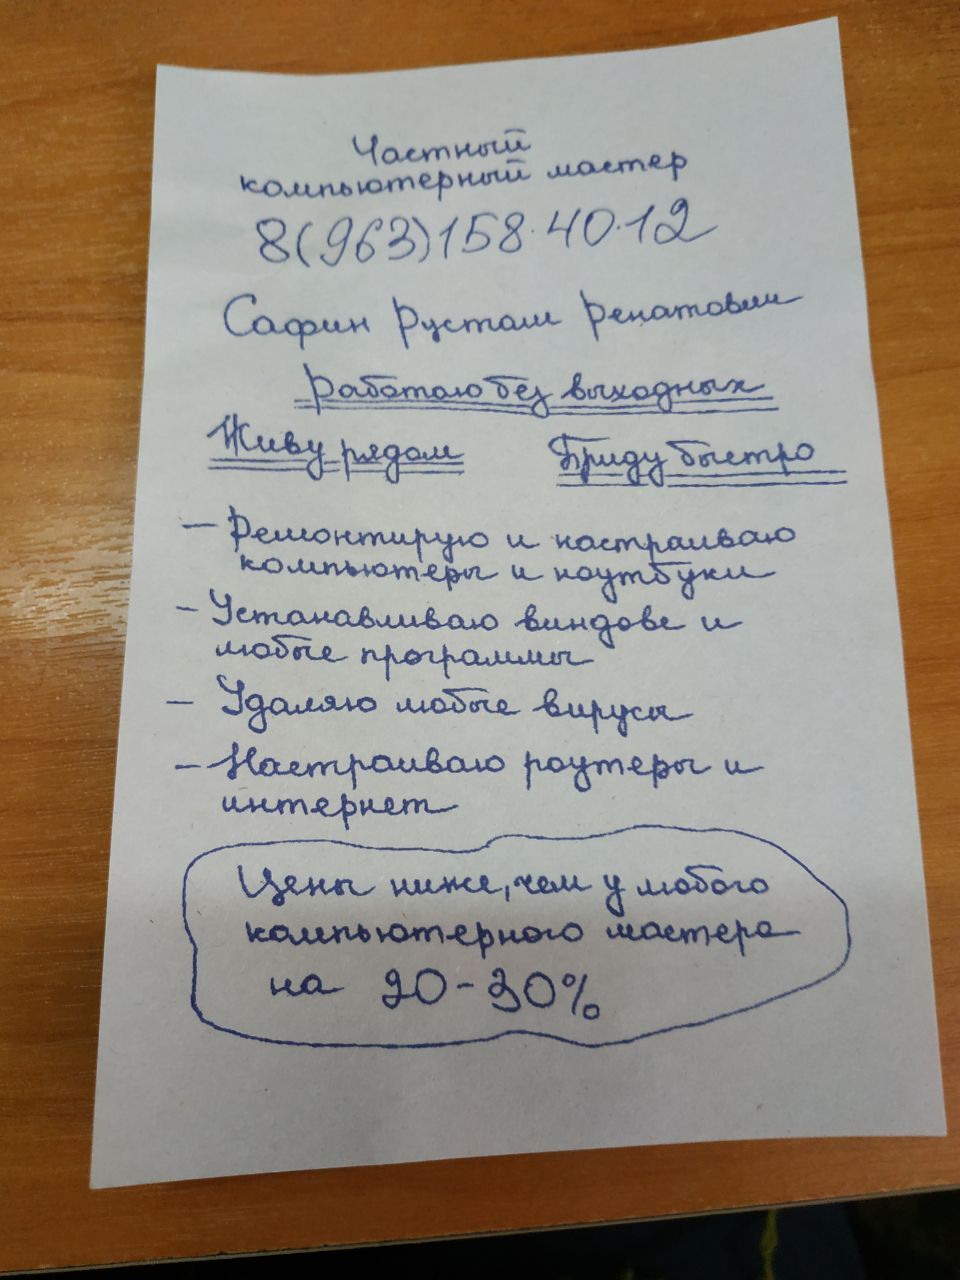 Частный
компьютерный мастер
8(963)158-40-12
Сафин Рустам Ренатович
Работаю без выходных
Живу рядом Приду быстро
— Ремонтирую и настраиваю
компьютеры и ноутбуки
— Устанавливаю виндовс и
любые программы
— Удаляю любые вирусы
— Настраиваю роутеры и
интернет
Цены ниже, чем у любого
компьютерного мастера
на 20-30%